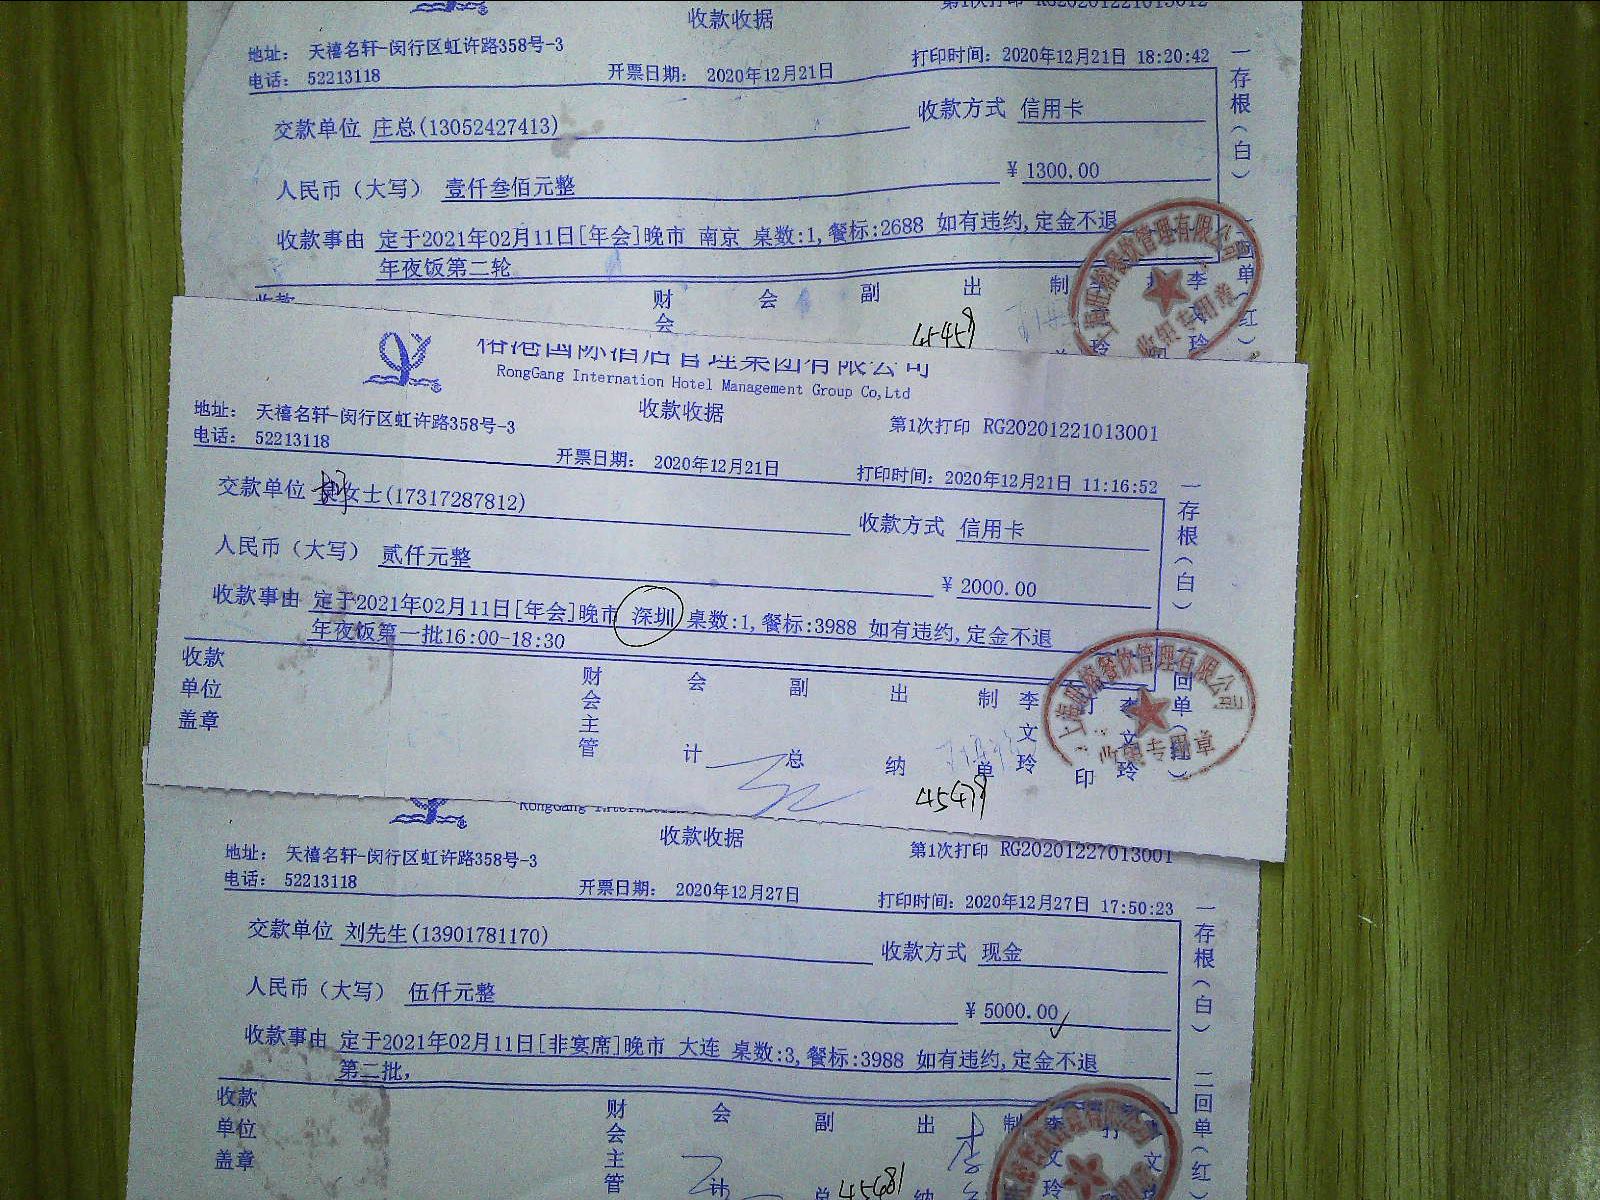 收款收据
地址： 天禧名轩-闵行区虹许路358号-3
电话： 52213118
开票日期： 2020年12月21日
打印时间：2020年12月21日 18:20:42
交款单位 庄总(13052427413)
收款方式 信用卡
人民币（大写） 壹仟叁佰元整
¥ 1300.00
收款事由 定于2021年02月11日[年会]晚市 南京 桌数:1,餐标:2688 如有违约,定金不退
年夜饭第二轮
一存根(白)
财会 会 副 出 制
裕港国际酒店管理集团有限公司
RongGang Internation Hotel Management Group Co,Ltd
收款收据
地址： 天禧名轩-闵行区虹许路358号-3
电话： 52213118
第1次打印 RG20201221013001
开票日期： 2020年12月21日
打印时间：2020年12月21日 11:16:52
交款单位 女士(17317287812)
收款方式 信用卡
人民币（大写） 贰仟元整
¥ 2000.00
收款事由 定于2021年02月11日[年会]晚市 深圳 桌数:1,餐标:3988 如有违约,定金不退
年夜饭第一批16:00-18:30
一存根(白)
收款单位盖章
财会主管 会计 副总 出纳 制单 李文玲 打印 李文玲
RongGang
收款收据
地址： 天禧名轩-闵行区虹许路358号-3
电话： 52213118
第1次打印 RG20201227013001
开票日期： 2020年12月27日
打印时间：2020年12月27日 17:50:23
交款单位 刘先生(13901781170)
收款方式 现金
人民币（大写） 伍仟元整
¥ 5000.00
收款事由 定于2021年02月11日[非宴席]晚市 大连 桌数:3,餐标:3988 如有违约,定金不退
第二批,
一存根(白) 二回单(红)
收款单位盖章
财会主管 会计 副总 出纳 制
45481